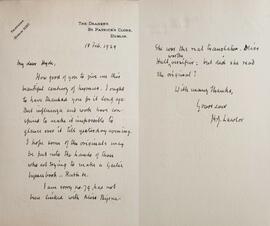 THE DEANERY,
ST. PATRICK'S CLOSE,
DUBLIN.
18 Feb. 1929
My dear Hyde,
How good of you to give me this
beautiful century of hymns. I ought
to have thanked you for it long ago.
But influenza and work have con-
spired to make it impossible to
glance over it till yesterday morning.
I hope some of the originals may
be put into the hands of those
who are trying to make a Gaelic
hymnbook —
I am sorry no. 79 has not
been linked with Miss Byrne.
She was the real translator. Miss
Hull, worthy ; but had she read
the original?
With many thanks,
Yours ever
H J Lawlor